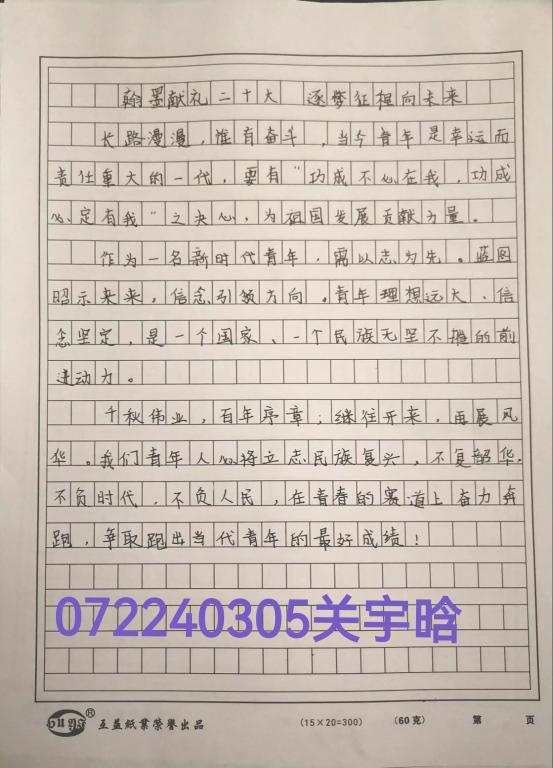 翰墨献礼二十大 逐梦征程向未来
长路漫漫，惟有奋斗，当今青年是幸运而
责任重大的一代，要有“功成不必在我，功成
必定有我”之决心，为祖国发展贡献力量。
作为一名新时代青年，需以志为先。蓝图
昭示未来，信念引领方向。青年理想远大、信
念坚定，是一个国家、一个民族无坚不摧的前
进动力。
千秋伟业，百年序章；继往开来，再展风
华。我们青年人必将立志民族复兴，不负韶华，
不负时代，不负人民，在青春的赛道上奋力奔
跑，争取跑出当代青年的最好成绩！
072240305关宇晗
® 互益纸业荣誉出品 （15×20=300） （60克） 第 页